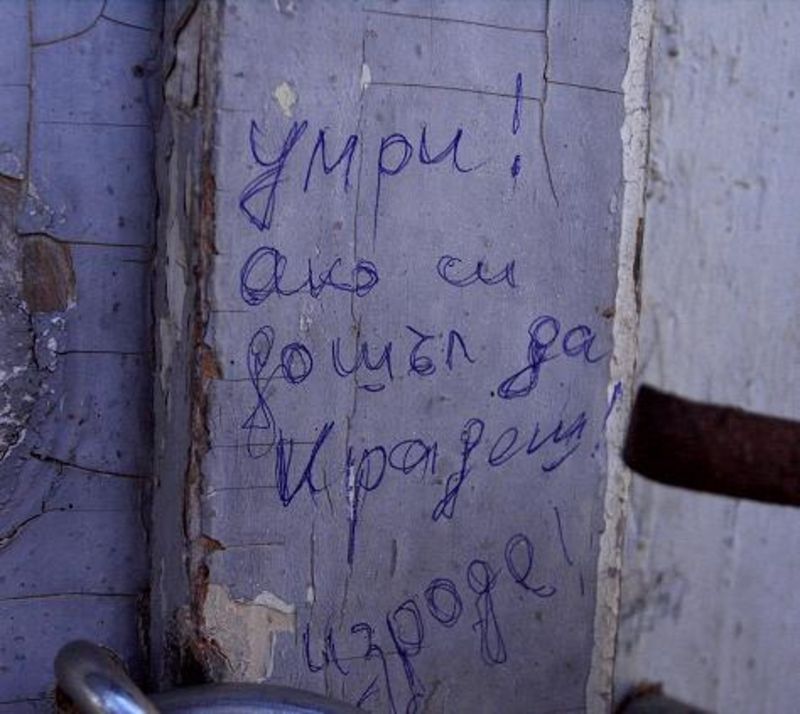 умри!
ако си
дошъл да
крадеш!
изроде!